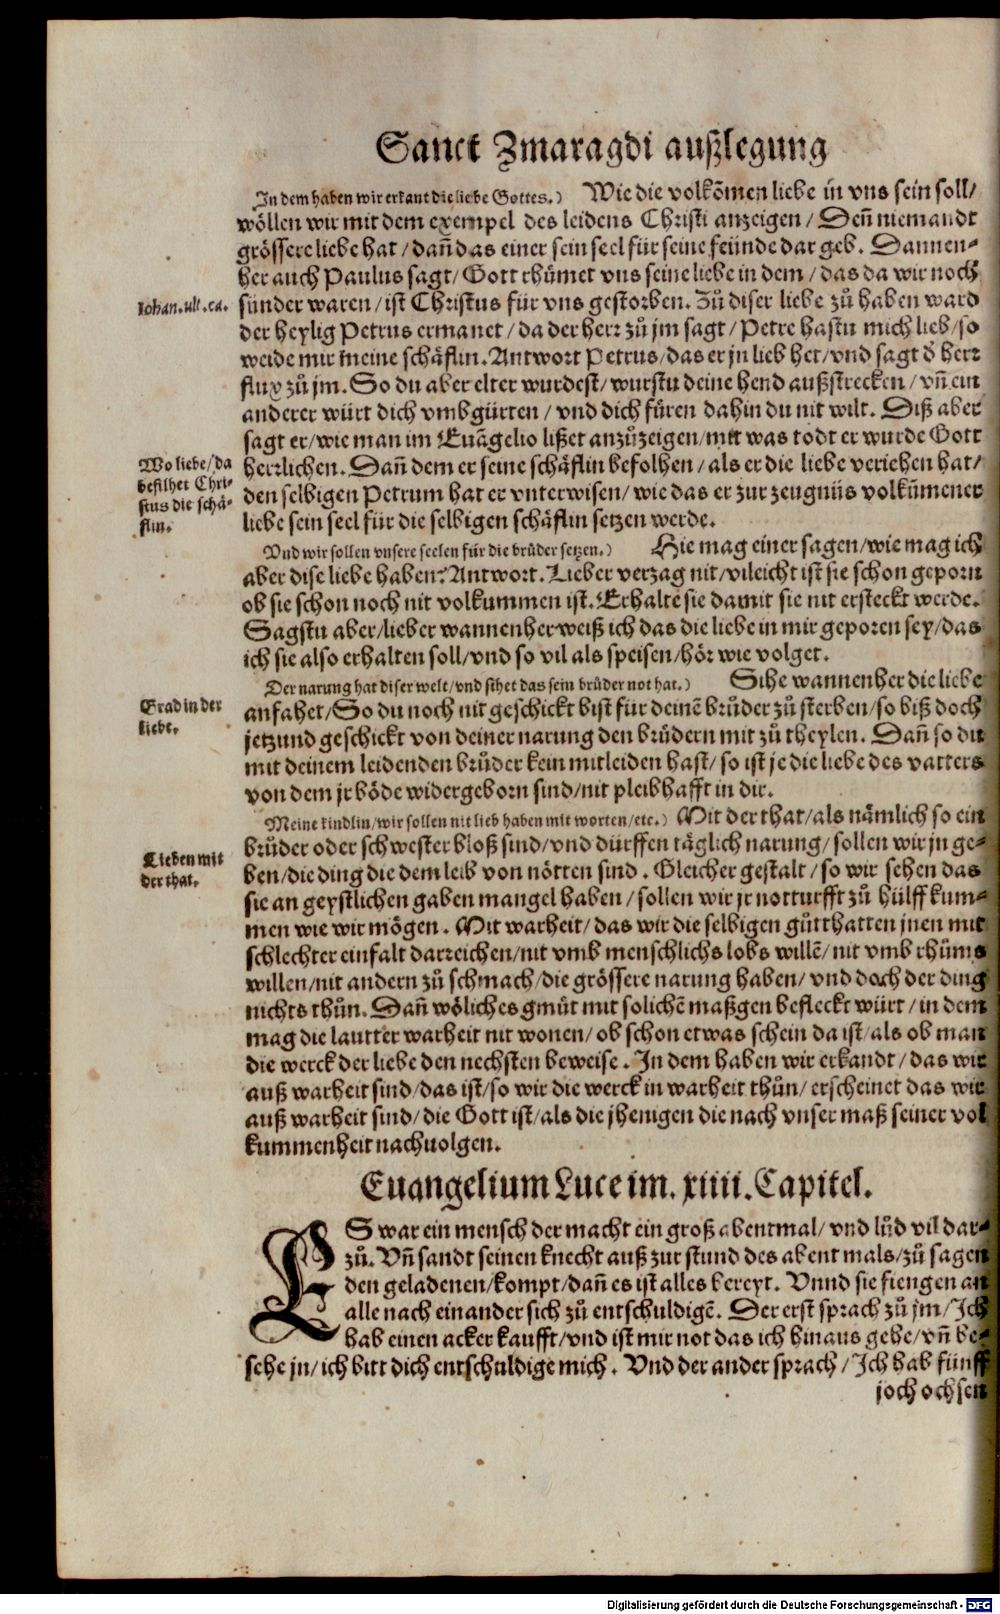 Sanct Zmaragdi außlegung
In dem haben wir erkant die liebe Gottes.) Wie die volkõmen liebe in vns sein soll/
wöllen wir mit dem exempel des leidens Christi anzeigen / Deñ niemandt
grössere liebe hat / dañ das einer sein seel für seine feünde dar geb. Dannen-
her auch Paulus sagt/ Gott rhůmet vns seine liebe in dem / das da wir noch
Iohan. ult. ca.
sünder waren / ist Christus für vns gestorben. Zů diser liebe zů haben ward
der heylig Petrus ermanet / da der herr zů jm sagt / Petre hastu mich lieb/ so
weide mir meine schäflin. Antwort Petrus/ das er jn lieb het/ vnd sagt d̃ herr
flux zů jm. So du aber elter wurdest/ wurstu deine hend außstrecken / vñ ein
anderer würt dich vmbgürten / vnd dich füren dahin du nit wilt. Diß aber
sagt er/ wie man im Euãgelio lißet anzůzeigen/ mit was todt er wurde Gott
Wo liebe/ da
befilhet Chri-
stus die schä-
flin.
herrlichen. Dañ dem er seine schäflin befolhen / als er die liebe veriehen hat/
den selbigen Petrum hat er vnterwisen/ wie das er zur zeugnüs volkům̃ener
liebe sein seel für die selbigen schäflin setzen werde.
Vnd wir sollen vnsere seelen für die brüder setzen.) Hie mag einer sagen/ wie mag ich
aber dise liebe haben? Antwort. Lieber verzag nit/ vileicht ist sie schon geporn
ob sie schon noch nit volkummen ist. Erhalte sie damit sie nit ersteckt werde.
Sagstu aber/ lieber wannenher weiß ich das die liebe in mir geporen sey/ das
ich sie also erhalten soll/ vnd so vil als speisen/ hör wie volget.
Der narung hat diser welt/ vnd sihet das sein brüder not hat.) Sihe wannenher die liebe
Grad in der
liebe.
anfahet/ So du noch nit geschickt bist für deinẽ brůder zů sterben/ so biß doch
jetzund geschickt von deiner narung den brüdern mit zů theylen. Dañ so du
mit deinem leidenden brůder kein mitleiden hast/ so ist je die liebe des vatters
von dem jr böde widergeborn sind/ nit pleibhafft in dir.
Meine kindlin/ wir sollen nit lieb haben mit worten/ etc.) Mit der that/ als nämlich so ein
Lieben mit
der that.
brůder oder schwester bloß sind/ vnd dürffen täglich narung/ sollen wir jn ge-
ben/ die ding die dem leib von nötten sind. Gleicher gestalt/ so wir sehen das
sie an geystlichen gaben mangel haben / sollen wir jr notturfft zů hülff kum-
men wie wir mögen. Mit warheit/ das wir die selbigen gůtthatten jnen mit
schlechter einfalt darreichen/ nit vmb menschlichs lobs willẽ/ nit vmb rhůms
willen/ nit andern zů schmach/ die grössere narung haben/ vnd doch der ding
nichts thůn. Dañ wöliches gmůt mit solichẽ maßgen befleckt würt / in dem
mag die lautter warheit nit wonen/ ob schon etwas schein da ist/ als ob man
die werck der liebe den nechsten beweise. In dem haben wir erkandt / das wir
auß warheit sind/ das ist/ so wir die werck in warheit thůn/ erscheinet das wir
auß warheit sind/ die Gott ist/ als die jhenigen die nach vnser maß seiner vol
kummenheit nachuolgen.
Euangelium Luce im. xiiii. Capitel.
ES war ein mensch der macht ein groß abentmal/ vnd lůd vil dar-
zů. Vñ sandt seinen knecht auß zur stund des abentmals/ zů sagen
den geladenen/ kompt/ dañ es ist alles bereyt. Vnnd sie fiengen an
alle nach einander sich zů entschuldigẽ. Der erst sprach zů jm/ Ich
hab einen acker kaufft/ vnd ist mir not das ich hinaus gehe/ vñ be-
sehe jn/ ich bitt dich entschuldige mich. Vnd der ander sprach / Ich hab fünff
joch ochsen
Digitalisierung gefördert durch die Deutsche Forschungsgemeinschaft - DFG